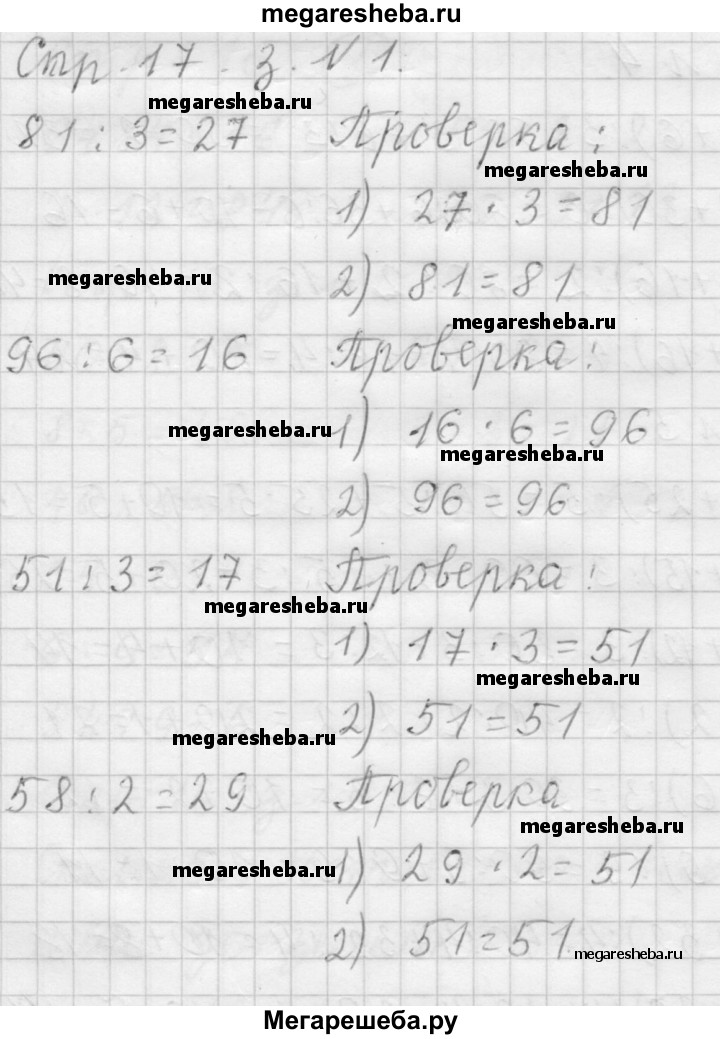 megaresheba.ru
Стр. 17. з. №1.
megaresheba.ru
81 : 3 = 27 Проверка:
megaresheba.ru
1) 27 · 3 = 81
megaresheba.ru
2) 81 = 81
megaresheba.ru
96 : 6 = 16 Проверка:
megaresheba.ru
1) 16 · 6 = 96
megaresheba.ru
2) 96 = 96
51 : 3 = 17 Проверка:
megaresheba.ru
1) 17 · 3 = 51
megaresheba.ru
2) 51 = 51
megaresheba.ru
58 : 2 = 29 Проверка
megaresheba.ru
megaresheba.ru
1) 29 · 2 = 51
2) 51 = 51
megaresheba.ru
Мегарешеба.ру